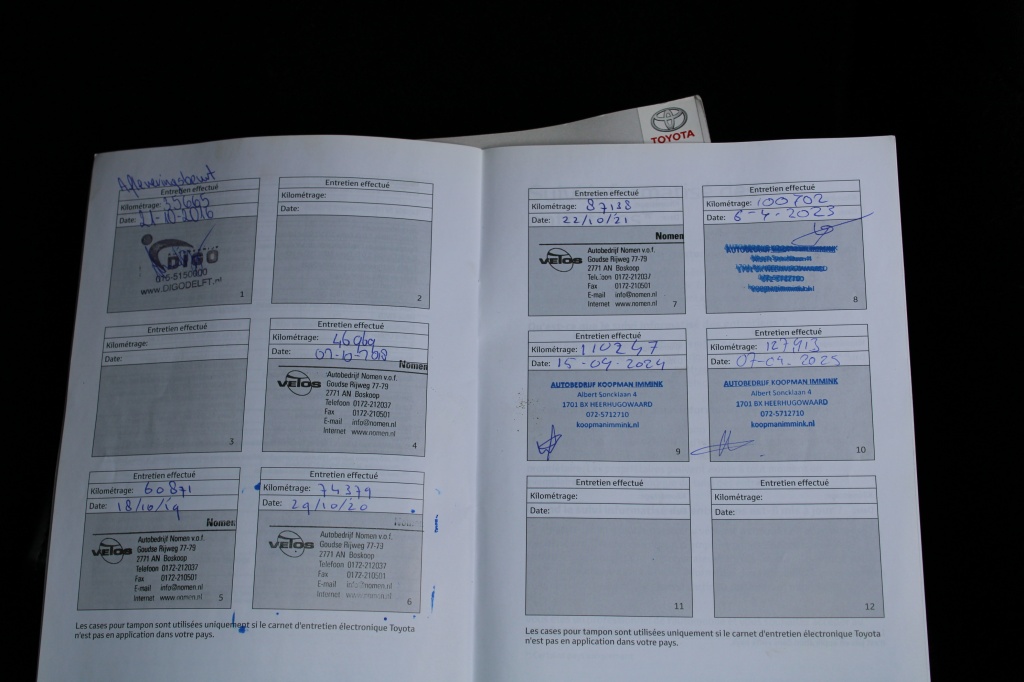 TOYOTA
Afleveringsbeurt
Entretien effectué
Kilométrage: 35665
Date: 21-10-2016
DIGO
015-5150000
www.DIGODELFT.nl
1
Entretien effectué
Kilométrage:
Date:
2
Entretien effectué
Kilométrage:
Date:
3
Entretien effectué
Kilométrage: 46969
Date: 01-10-2018
Nomen
VELOS
Autobedrijf Nomen v.o.f.
Goudse Rijweg 77-79
2771 AN Boskoop
Telefoon 0172-212037
Fax 0172-210501
E-mail info@nomen.nl
Internet www.nomen.nl
4
Entretien effectué
Kilométrage: 60871
Date: 18/10/19
Nomen
VELOS
Autobedrijf Nomen v.o.f.
Goudse Rijweg 77-79
2771 AN Boskoop
Telefoon 0172-212037
Fax 0172-210501
E-mail info@nomen.nl
Internet www.nomen.nl
5
Entretien effectué
Kilométrage: 74379
Date: 29/10/20
VELOS
Autobedrijf Nomen v.o.f.
Goudse Rijweg 77-79
2771 AN Boskoop
Telefoon 0172-212037
Fax 0172-210501
E-mail info@nomen.nl
Internet www.nomen.nl
6
Les cases pour tampon sont utilisées uniquement si le carnet d'entretien électronique Toyota
n'est pas en application dans votre pays.
Entretien effectué
Kilométrage: 87138
Date: 22/10/21
Nomen
VELOS
Autobedrijf Nomen v.o.f.
Goudse Rijweg 77-79
2771 AN Boskoop
Telefoon 0172-212037
Fax 0172-210501
E-mail info@nomen.nl
Internet www.nomen.nl
7
Entretien effectué
Kilométrage: 100702
Date: 6-4-2023
AUTOBEDRIJF KOOPMAN IMMINK
1701 BX HEERHUGOWAARD
072-5712710
koopmanimmink.nl
8
Entretien effectué
Kilométrage: 110247
Date: 15-04-2024
AUTOBEDRIJF KOOPMAN IMMINK
Albert Soncklaan 4
1701 BX HEERHUGOWAARD
072-5712710
koopmanimmink.nl
9
Entretien effectué
Kilométrage: 127913
Date: 07-04-2025
AUTOBEDRIJF KOOPMAN IMMINK
Albert Soncklaan 4
1701 BX HEERHUGOWAARD
072-5712710
koopmanimmink.nl
10
Entretien effectué
Kilométrage:
Date:
11
Entretien effectué
Kilométrage:
Date:
12
Les cases pour tampon sont utilisées uniquement si le carnet d'entretien électronique Toyota
n'est pas en application dans votre pays.